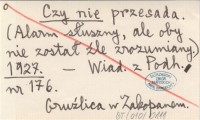 Czy nie przesada.
(Alarm słuszny, ale oby
nie został źle zrozumiany.)
1927. — Wiad. z Podh.
nr 176.
Gruźlica w Zakopanem.